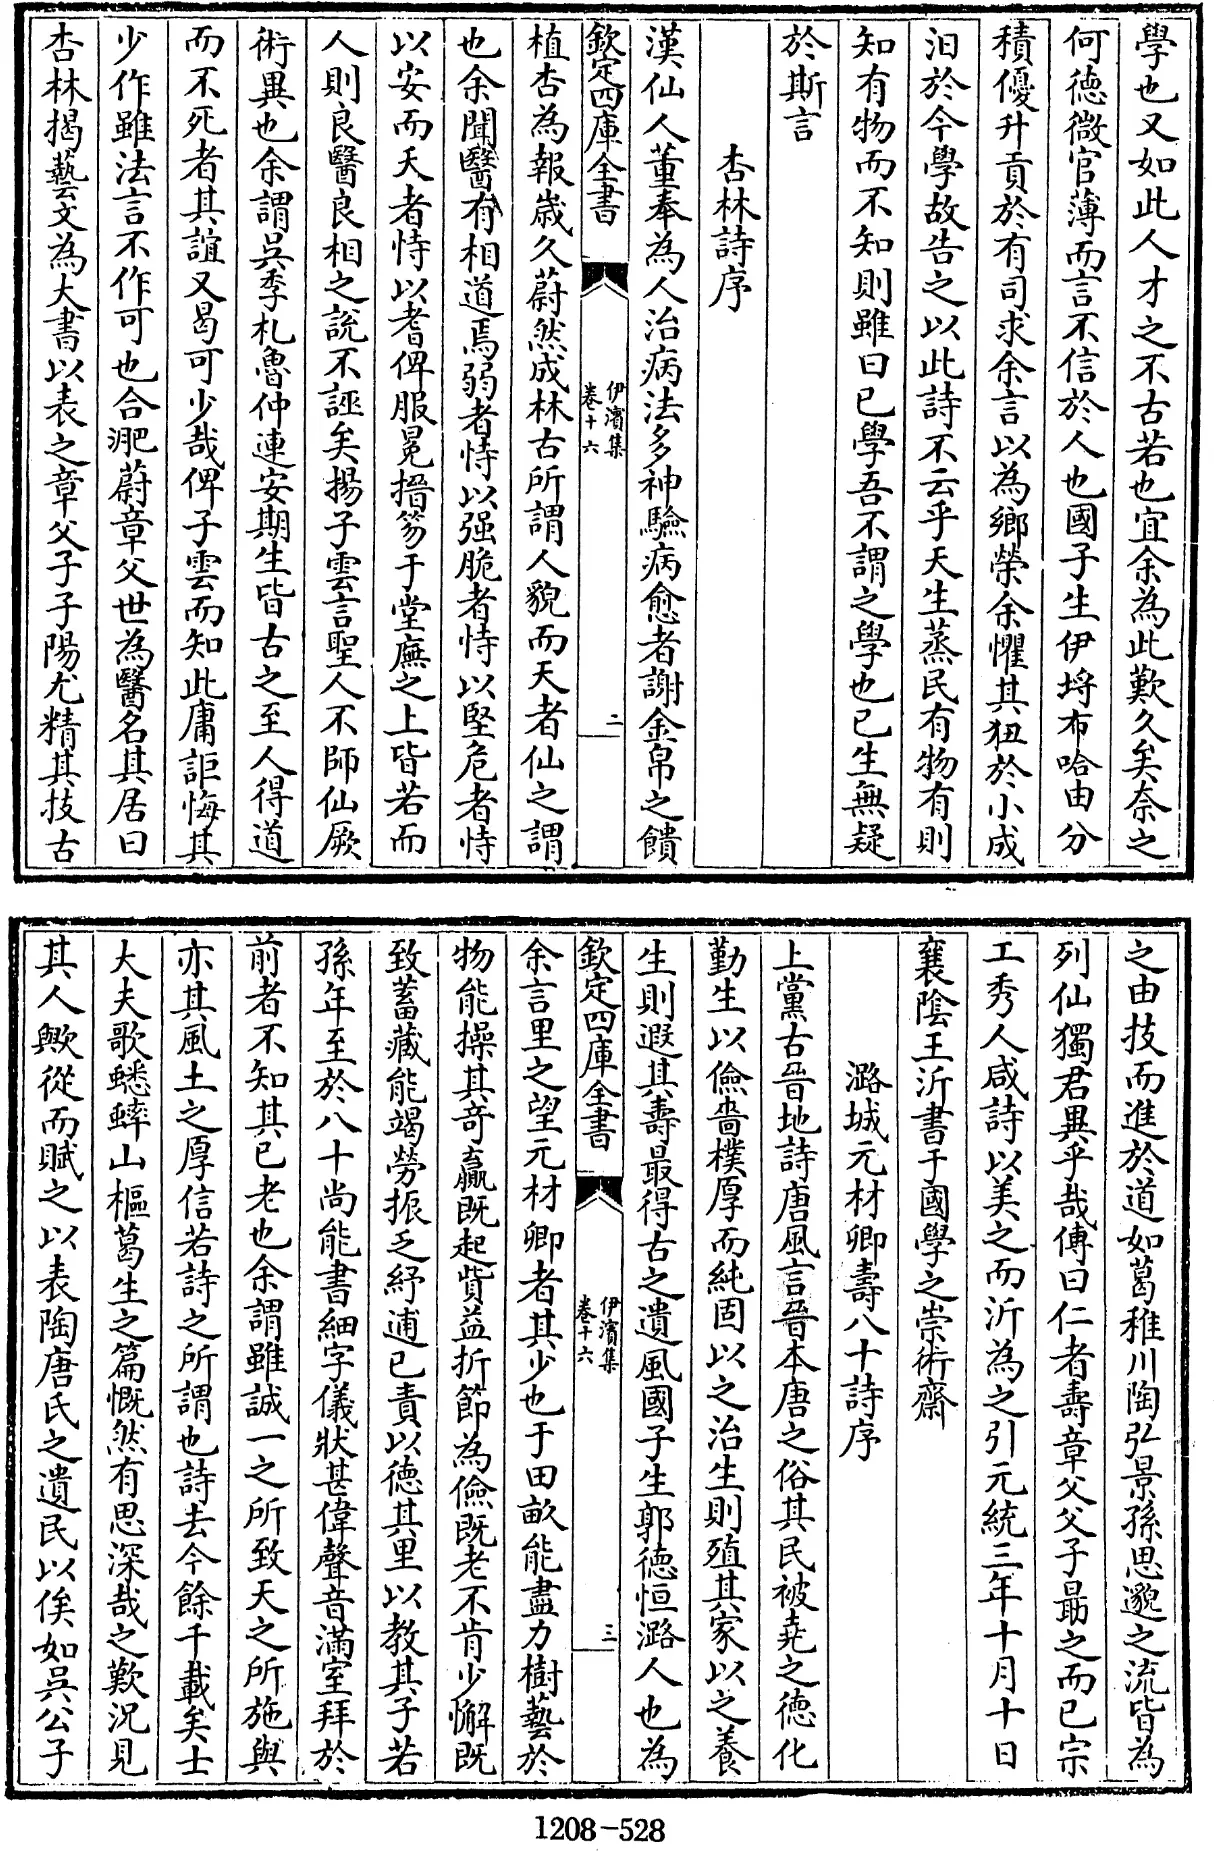 學也又如此人才之不古若也宜余為此歎久矣奈之
何德微官薄而言不信於人也國子生伊埒布哈由分
積優升貢於有司求余言以為鄉榮余懼其狃於小成
汨於今學故告之以此詩不云乎天生蒸民有物有則
知有物而不知則雖曰已學吾不謂之學也已生無疑
於斯言
杏林詩序
漢仙人董奉為人治病法多神驗病愈者謝金帛之饋
欽定四庫全書
伊濱集
卷十六
二
植杏為報歲久蔚然成林古所謂人貌而天者仙之謂
也余聞醫有相道焉弱者恃以强脆者恃以堅危者恃
以安而夭者恃以耆俾服冕搢笏于堂廡之上皆若而
人則良醫良相之說不誣矣揚子雲言聖人不師仙厥
術異也余謂吳季札魯仲連安期生皆古之至人得道
而不死者其誼又曷可少哉俾子雲而知此庸詎悔其
少作雖法言不作可也合淝蔚章父世為醫名其居曰
杏林揭藝文為大書以表之章父子子陽尤精其技古
之由技而進於道如葛稚川陶弘景孫思邈之流皆為
列仙獨君異乎哉傳曰仁者壽章父父子勗之而已宗
工秀人咸詩以美之而沂為之引元統三年十月十日
襄陰王沂書于國學之崇術齋
潞城元材卿壽八十詩序
上黨古晉地詩唐風言晉本唐之俗其民被堯之德化
勤生以儉嗇樸厚而純固以之治生則殖其家以之養
生則遐其壽最得古之遺風國子生郭德恒潞人也為
欽定四庫全書
伊濱集
卷十六
三
余言里之望元材卿者其少也于田畝能盡力樹藝於
物能操其奇贏既起貲益折節為儉既老不肯少懈既
致蓄藏能竭勞振乏紓逋已責以德其里以教其子若
孫年至於八十尚能書細字儀狀甚偉聲音滿室拜於
前者不知其已老也余謂雖誠一之所致天之所施與
亦其風土之厚信若詩之所謂也詩去今餘千載矣士
大夫歌蟋蟀山樞葛生之篇慨然有思深哉之歎況見
其人歟從而賦之以表陶唐氏之遺民以俟如吳公子
1208-528